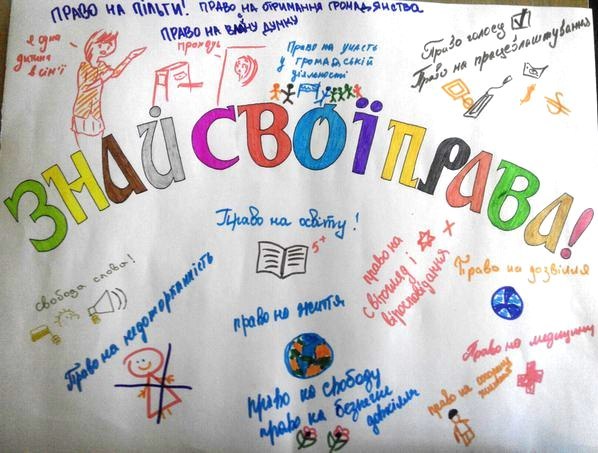 ПРАВО НА ПІЛЬГИ! ПРАВО НА ОТРИМАННЯ ГРОМАДЯНСТВА
ПРАВО НА ВЛАСНУ ДУМКУ
Я одна
дитина
в сім'ї
Право на участь
у громадській
діяльності
Право голосу
Право на працевлаштування
ЗНАЙ СВОЇ ПРАВА!
Право на освіту!
5+
свобода слова!
Право на недоторканність
право на життя
право на
світогляд і
віросповідання
Право на дозвілля
Право на медицину
право на свободу
право на безпечне
довкілля
право на охорону